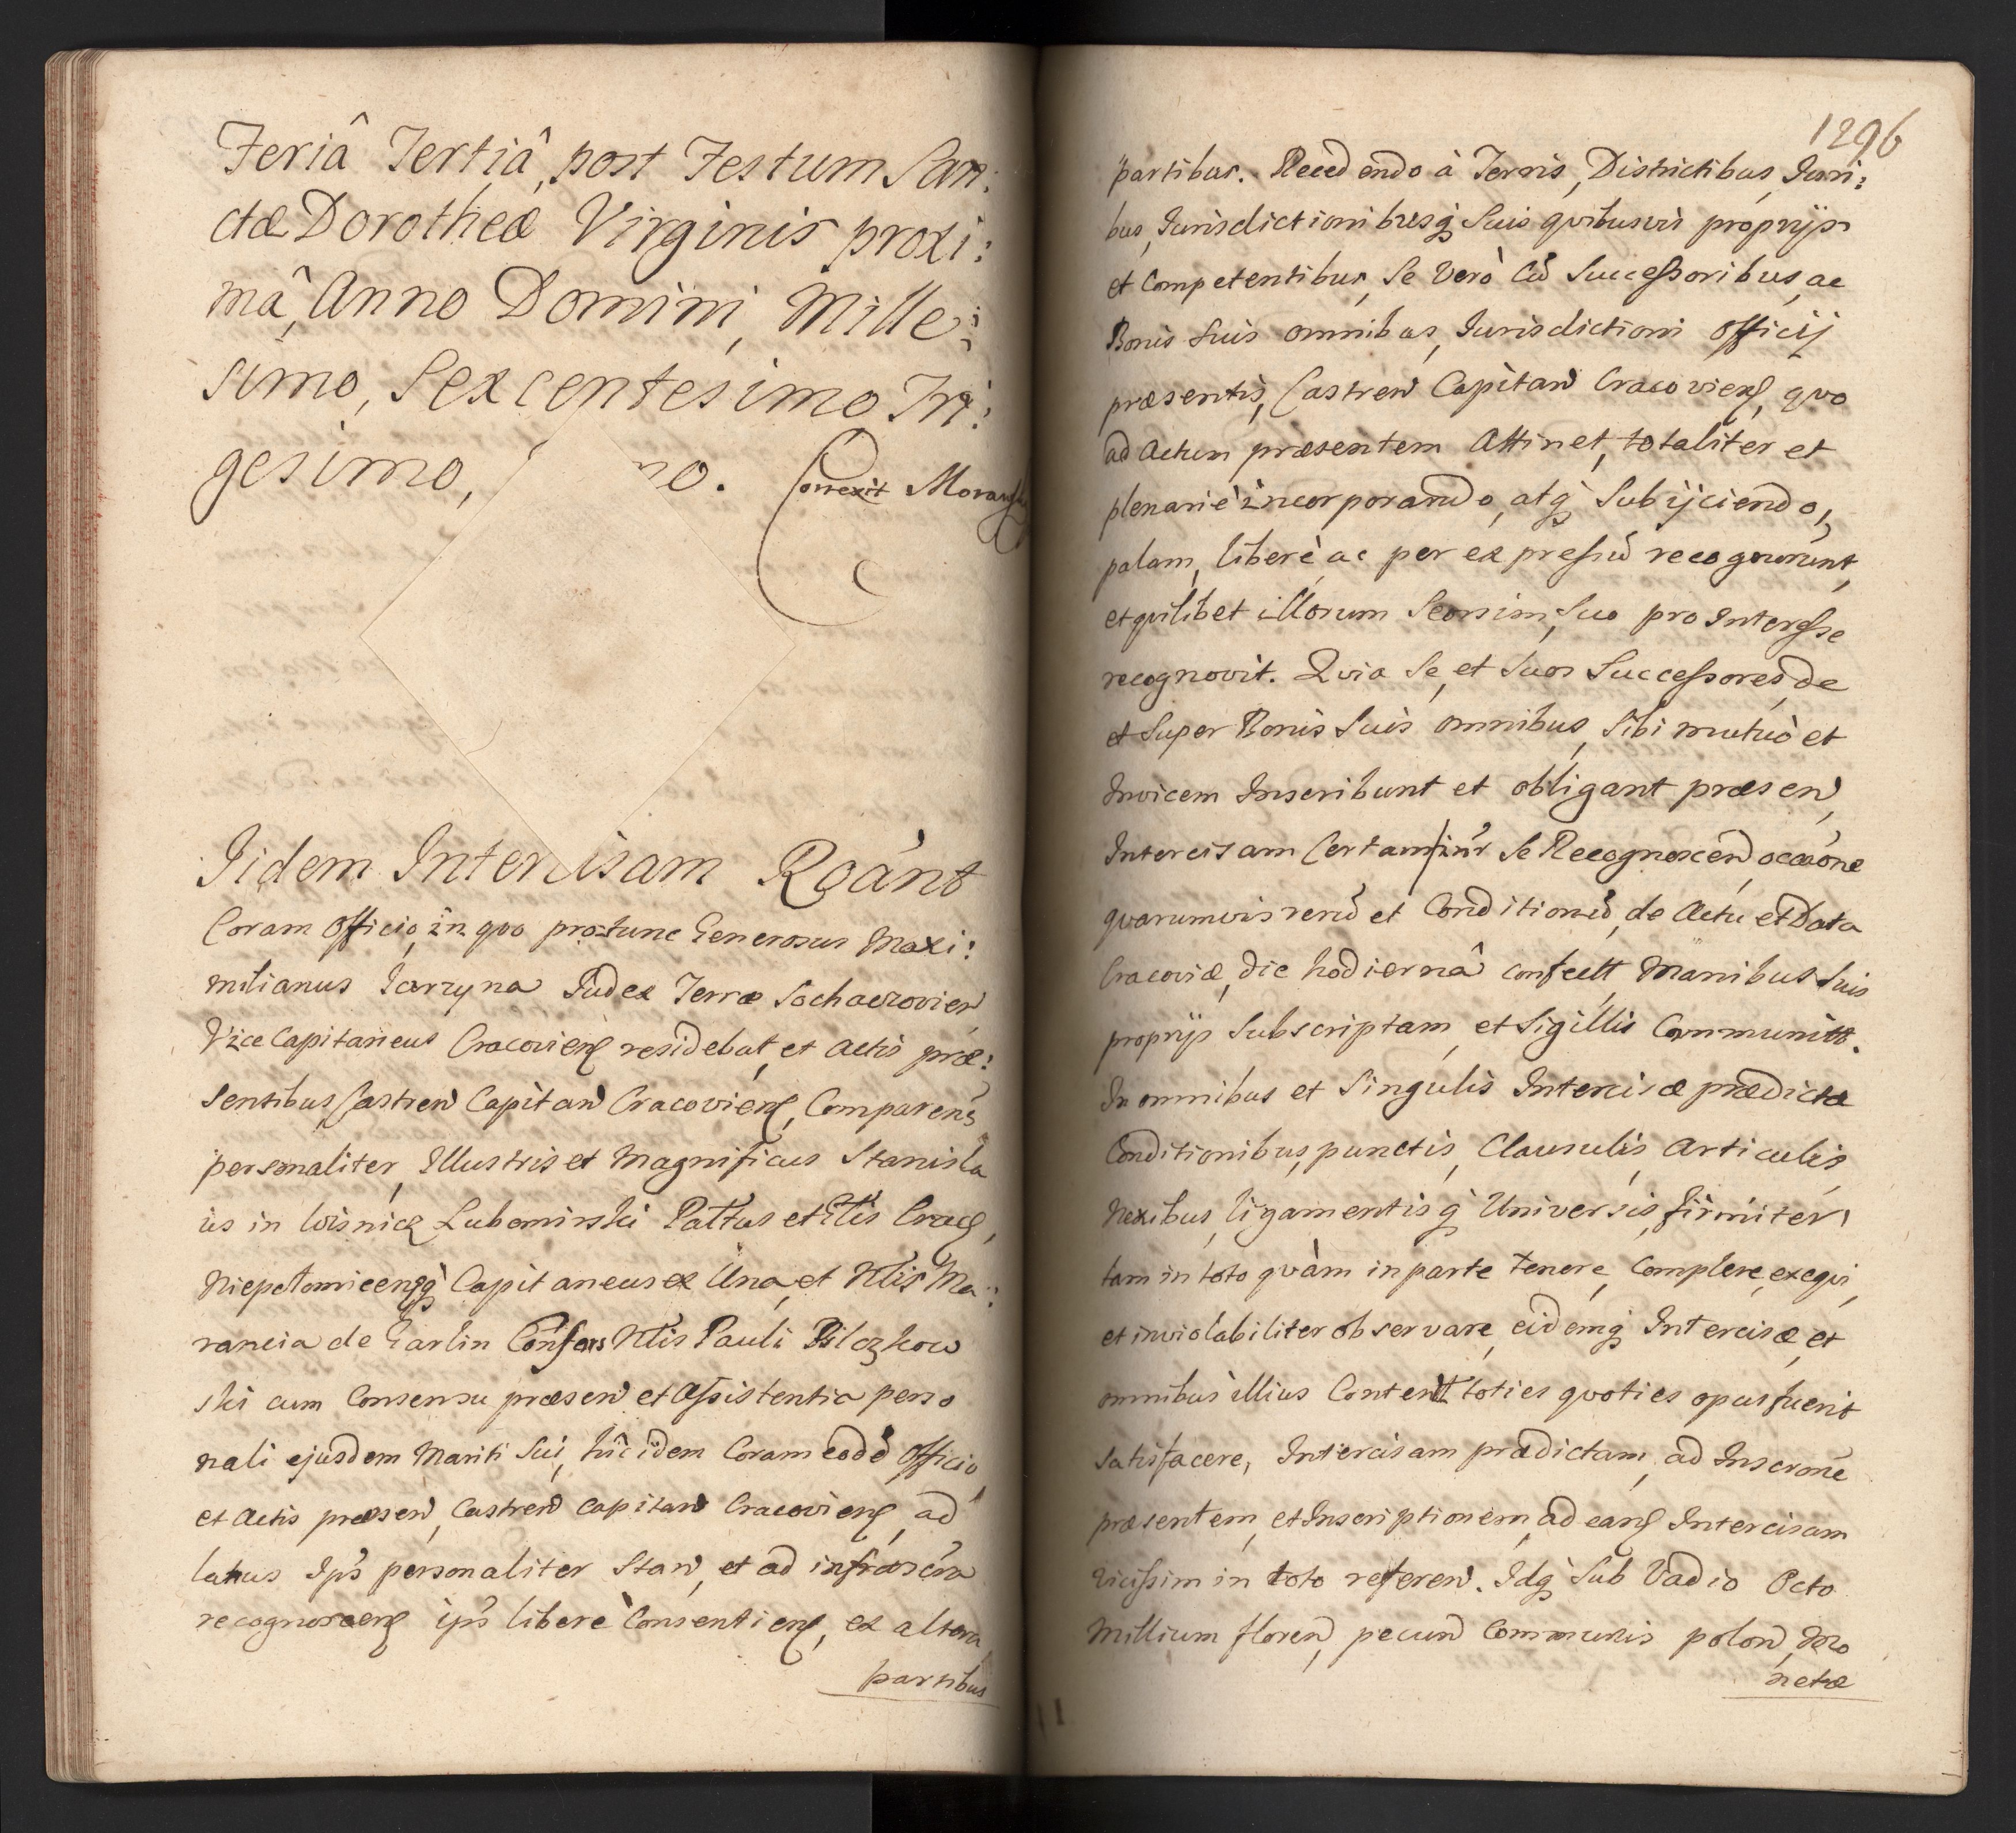 Feriâ Tertiâ, post Festum San:
ctæ Dorotheæ Virginis proxi:
mâ, Anno Domini, Mille:
simo, Sexcentesimo Tri:
gesimo, no. Correxit
Iidem Intercisam Rcánt
Coram Officio, in quo protunc Generosus Maxi:
milianus Jarzyna Judex Terræ Sochaczovien
Vice Capitaneus Cracovien residebat, et Actis præ:
sentibus, Castren Capitan Cracovien, Comparens
personaliter, Illustris et Magnificus Stanisla
us in Wisnicz Lubomirski Palttus et Gtis Crac,
Niepolomicenqꝫ Capitaneus ex Una, et Ntis Ma:
rancia de Garlin Consors Ntis Pauli Pilczkow
ski cum Consensu præsen et Assistentia perso
nali ejusdem Mariti Sui, hic idem Coram eodē Officio,
et Actis præsen, Castren Capitan Cracovien, ad
latus Ips personaliter Stan, et ad infrascra
recognoscen ips liberè Consentien, ex altera
partibus
1296
partibus. Recedendo à Terris, Districtibus, Juri:
bus, Jurisdictionibusqꝫ Suis quibusvis proprijs
et Competentibus, Se Verò Cū Successoribus, ac
Bonis Suis omnibus, Jurisdictioni Officij
præsentis, Castren Capitan Cracovien, quo
ad Actum præsentem Attinet, totaliter et
plenariè incorporando, atqꝫ Subijciendo,
palam, liberè ac per expressū recognovrunt,
et quilibet illorum Seorsim, Suo pro Interesse
recognovit. Quia Se, et Suos Successores, de
et Super Bonis Suis omnibus, Sibi mutuò et
Invicem Inscribunt et obligant præsen,
Intercisam Certam intr Se Recognoscen, occaōne
quarumvis rerū et Conditionū, de Actu et Data
Cracoviæ, die hodiernâ confectt, Manibus Suis
proprijs Subscriptam, et Sigillis Communitt.
In omnibus et Singulis Intercisæ prædictæ
Conditionibus, punctis, Clausulis, Articulis,
Nexibus, ligamentisqꝫ Universis, firmiter,
tam in toto quàm in parte tenere, Complere, exequi,
et inviolabiliter observare, eidemqꝫ Intercisæ, et
omnibus illius Contentt toties quoties opus fuerit
satisfacere, Intercisam prædictam, ad Inscrōnē
præsentem, et Inscriptionem, ad eand Intercisam
vicissim in toto referen. Idqꝫ Sub Vadio Octo
Millium floren, pecun Communis polon, Mo
netæ